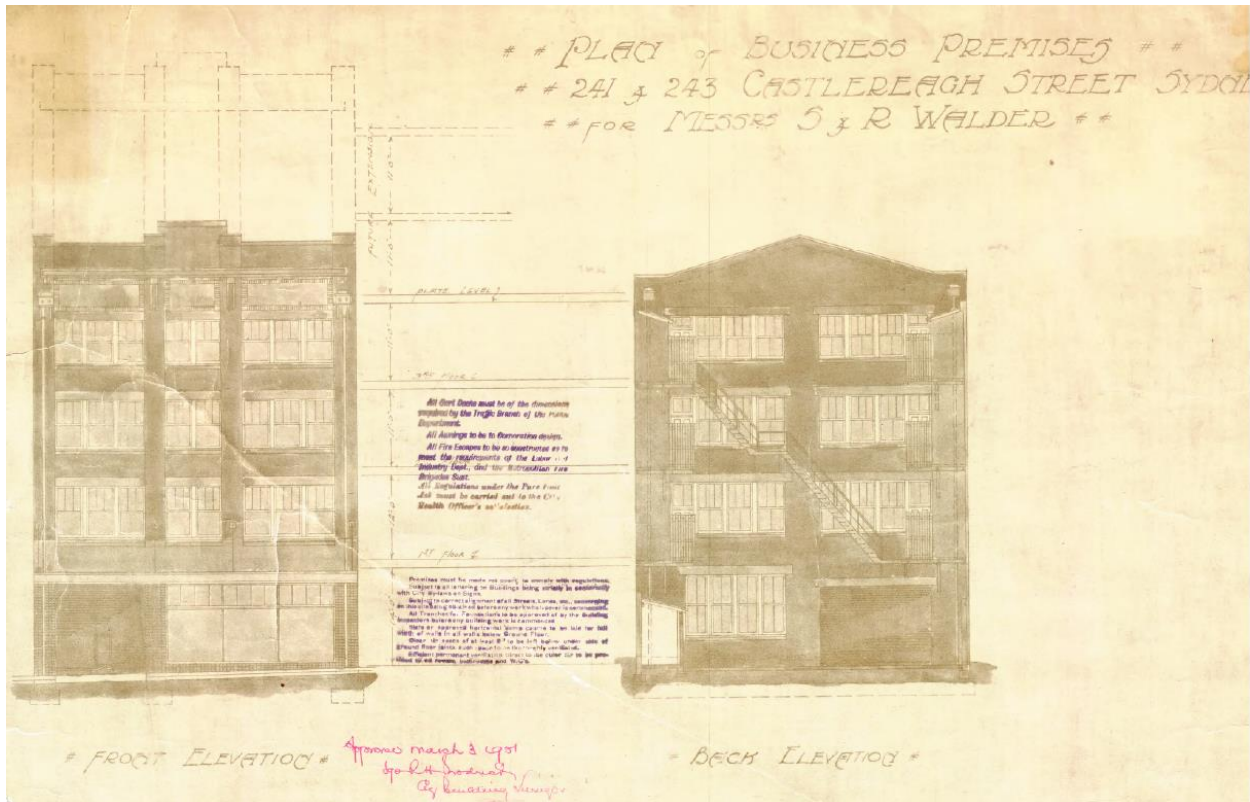 PLAN of BUSINESS PREMISES
241 & 243 CASTLEREAGH STREET SYDN
FOR MESSRS S & R WALDER
FUTURE EXTENSION
PLATE LEVEL
3RD FLOOR
All Cart Docks must be of the dimensions
required by the Traffic Branch of the Police
Department.
All Awnings to be to Corporation design.
All Fire Escapes to be so constructed as to
meet the requirements of the Labor and
Industry Dept., and the Metropolitan Fire
Brigades Bord.
All Regulations under the Pure Food
Act must be carried out to the City
Health Officer's satisfaction.
1ST FLOOR
Premises must be made rat proof, to comply with regulations.
Subject to all lettering on Buildings being strictly in conformity
with City By-laws on Signs.
Subject to correct alignment of all Streets, Lanes, etc., concerning
before any work whatsoever is commenced.
All Trenches for Foundations to be approved of by the Building
Inspectors before any building work is commenced.
approved horizontal damp course to be laid for full
width of walls in all walls below Ground Floor.
space of at least 6" to be left under side of
Ground Floor joists such space to be thoroughly ventilated.
Efficient permanent ventilation direct to the outer air to be pro-
vided to all rooms, bathrooms and W.C's.
FRONT ELEVATION
BACK ELEVATION
March 3
Building Surveyor